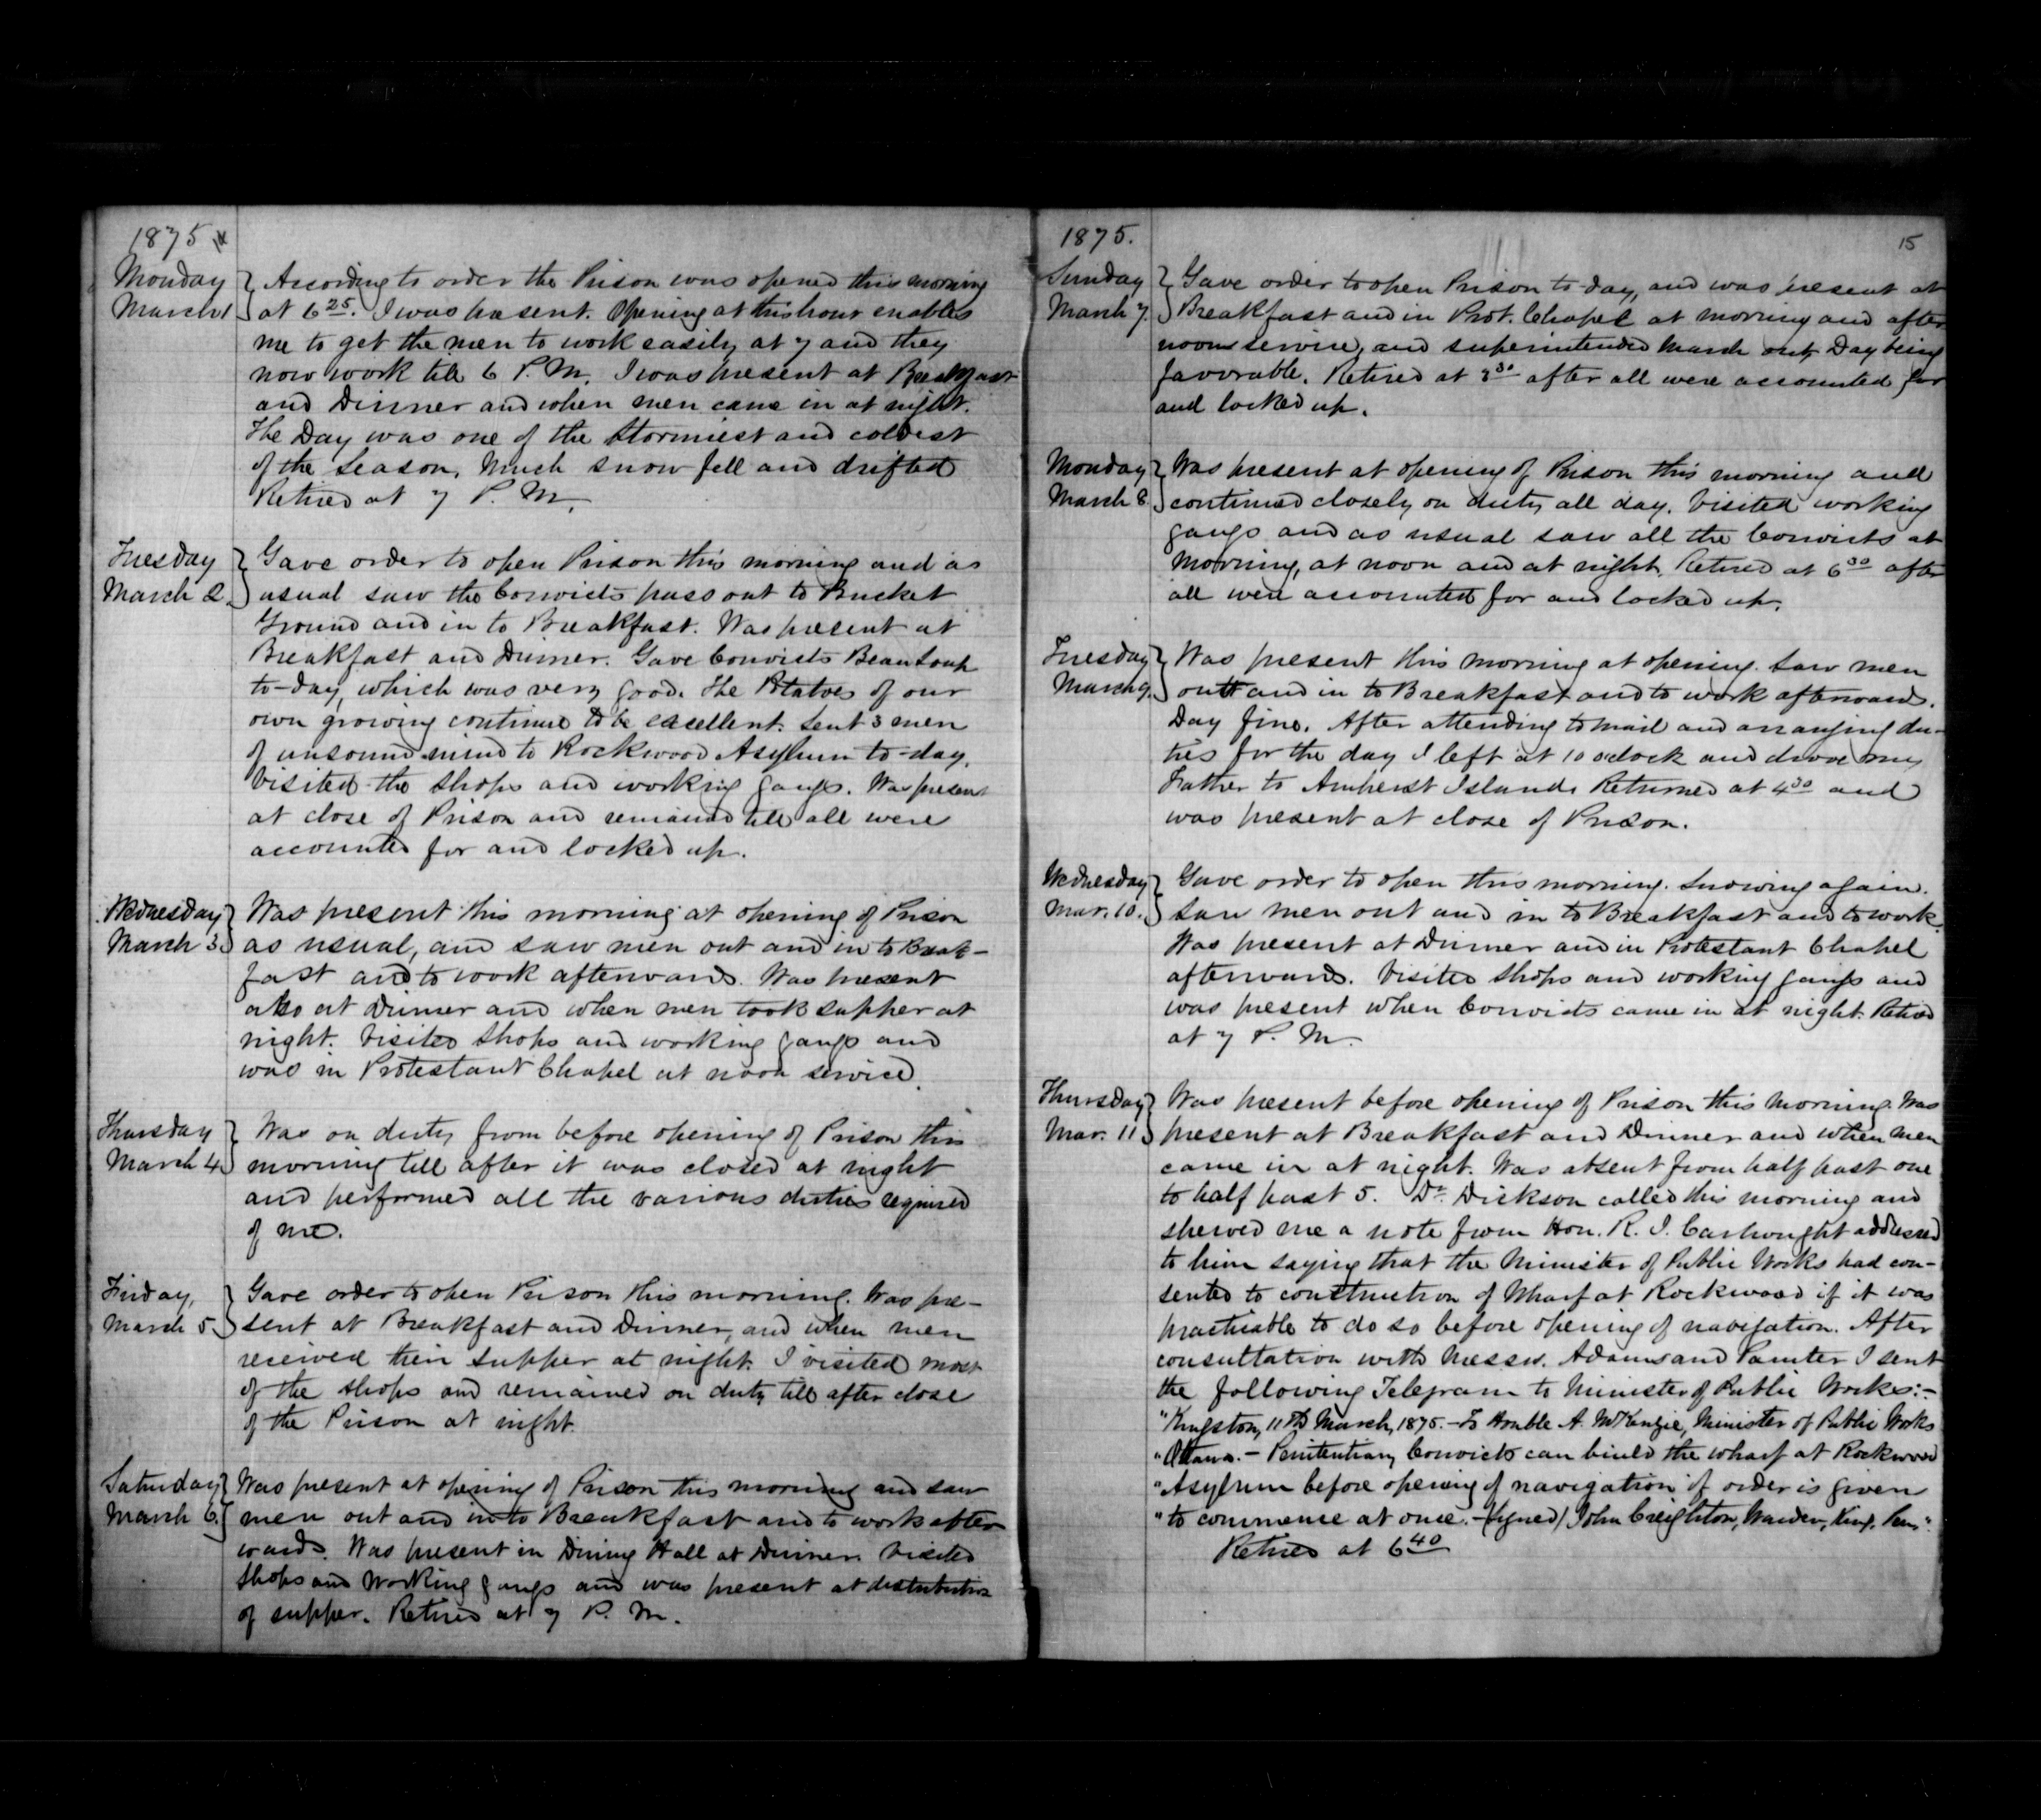 1875 14
Monday
March 1
According to order the Prison was opened this morning
at 6 25. I was present. Opening at this hour enables
me to get the men to work easily at 7 and they
now work till 6 P. M. I was present at Breakfast
and Dinner and when men came in at night.
The Day was one of the stormiest and coldest
of the Season, Much snow fell and drifted
Retired at 7 P. M.
Tuesday
March 2.
Gave order to open Prison this morning and as
usual saw the Convicts pass out to Bucket
Ground and in to Breakfast. Was present at
Breakfast and Dinner. Gave Convicts Bean Soup
to-day, which was very good. The Potatoes of our
own growing continue to be excellent. Sent 3 men
of unsound mind to Rockwood Asylum to-day.
Visited the Shops and working gangs. Was present
at close of Prison and remained till all were
accounted for and locked up.
Wednesday
March 3.
Was present this morning at opening of Prison
as usual, and saw men out and in to Break-
fast and to work afterwards. Was present
also at Dinner and when men took supper at
night. Visited Shops and working gangs and
was in Protestant Chapel at noon service.
Thursday
March 4.
Was on duty from before opening of Prison this
morning till after it was closed at night
and performed all the various duties required
of me.
Friday,
March 5.
Gave order to open Prison this morning. Was pre-
sent at Breakfast and Dinner, and when men
received their supper at night. I visited most
of the shops and remained on duty till after close
of the Prison at night.
Saturday
March 6.
Was present at opening of Prison this morning and saw
men out and in to Breakfast and to work after
wards. Was present in Dining Hall at Dinner. Visited
Shops and Working gangs and was present at distribution
of supper. Retired at 7 P. M.
1875.
15
Sunday
March 7.
Gave order to open Prison to-day, and was present at
Breakfast and in Prot. Chapel at morning and after
noon service, and superintended March out, Day being
favorable. Retired at 3 30 after all were accounted for
and locked up.
Monday
March 8.
Was present at opening of Prison this morning and
continued closely on duty all day. Visited working
gangs and as usual saw all the Convicts at
Morning, at noon and at night. Retired at 6 30 after
all were accounted for and locked up.
Tuesday
March 9.
Was present this morning at opening. Saw men
out and in to Breakfast and to work afterward.
Day fine. After attending to mail and arranging du-
ties for the day I left at 10 oclock and drove my
Father to Amherst Island. Returned at 4 30 and
was present at close of Prison.
Wednesday
Mar. 10.
Gave order to open this morning. Snowing again.
Saw men out and in to Breakfast and to work.
Was present at Dinner and in Protestant Chapel
afterwards. Visited Shops and working gangs and
was present when Convicts came in at night. Retired
at 7 P. M.
Thursday
Mar. 11
Was present before opening of Prison this morning. Was
present at Breakfast and Dinner and when men
came in at night. Was absent from half past one
to half past 5. Dr. Dickson called this morning and
shewed me a note from Hon. R. J. Cartwright addressed
to him saying that the Minister of Public Works had con-
sented to construction of Wharf at Rockwood if it was
practicable to do so before opening of navigation. After
consultation with Messrs. Adams and Painter I sent
the following Telegram to Minister of Public Works:-
"Kingston, 11th March, 1875. - To Honble A. McKenzie, Minister of Public Works
"Ottawa. - Penitentiary Convicts can build the wharf at Rockwood
"Asylum before opening of navigation if order is given
"to commence at once. - (signed) John Creighton, Warden, King. Pen".
Retired at 6 40